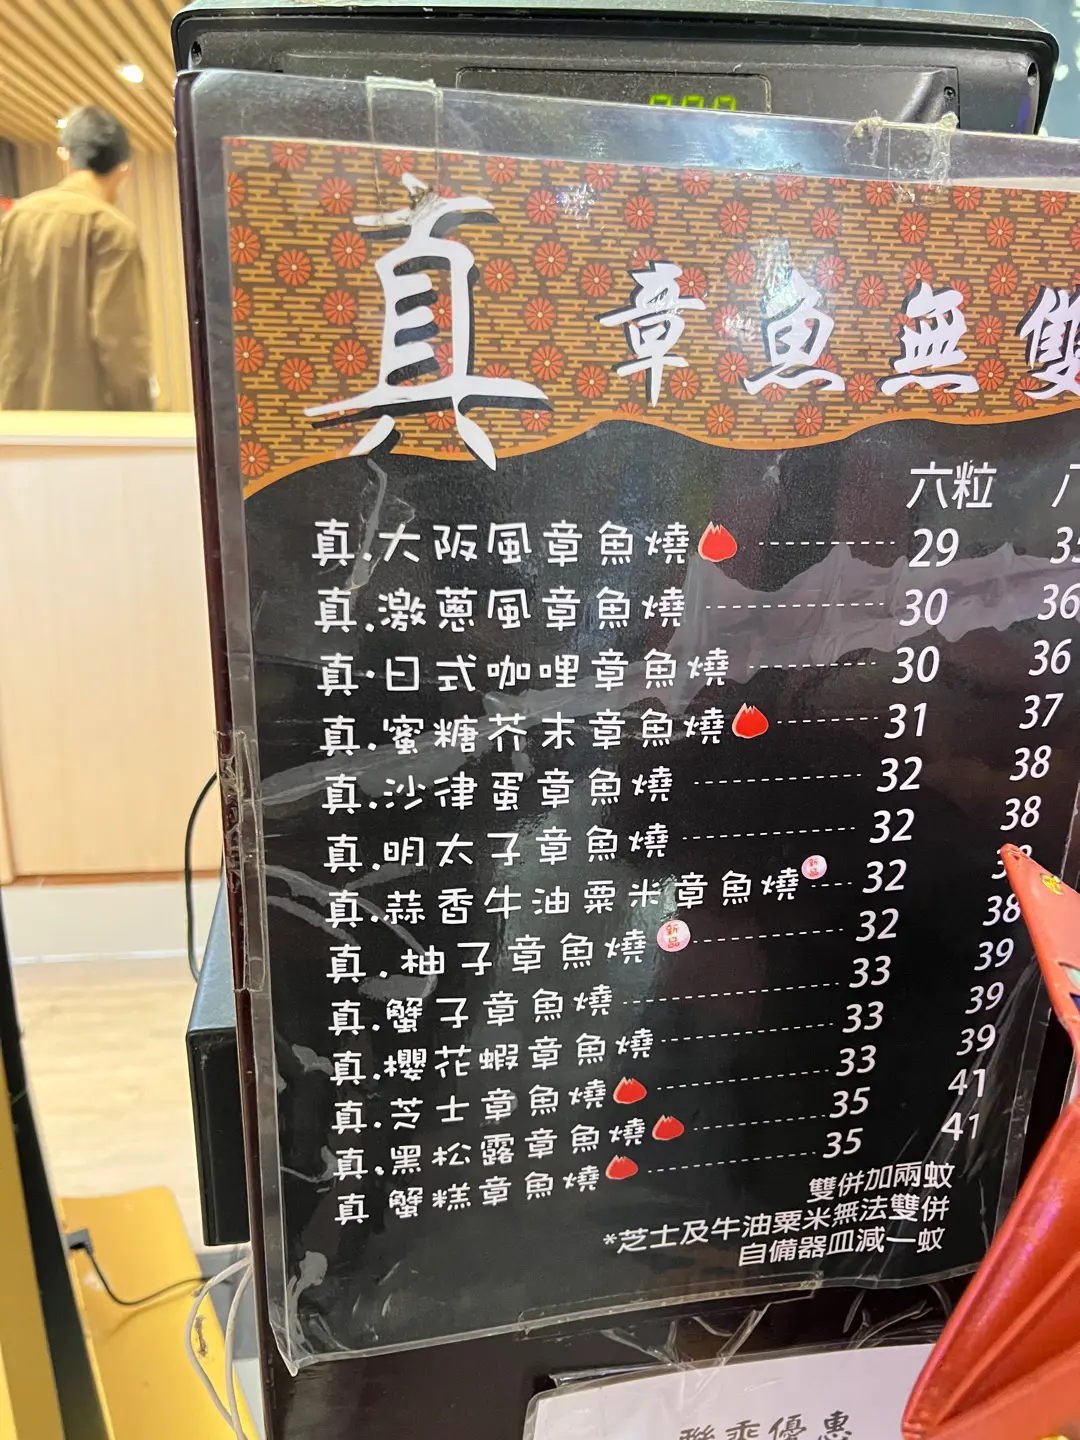 真 章魚無雙
六粒 八
真.大阪風章魚燒 29 35
真.激蔥風章魚燒 30 36
真.日式咖哩章魚燒 30 36
真.蜜糖芥末章魚燒 31 37
真.沙律蛋章魚燒 32 38
真.明太子章魚燒 32 38
真.蒜香牛油粟米章魚燒 新品 32 38
真.柚子章魚燒 新品 32 38
真.蟹子章魚燒 33 39
真.櫻花蝦章魚燒 33 39
真.芝士章魚燒 33 39
真.黑松露章魚燒 35 41
真 蟹糕章魚燒 35 41
雙併加兩蚊
*芝士及牛油粟米無法雙併
自備器皿減一蚊
聯乘優惠